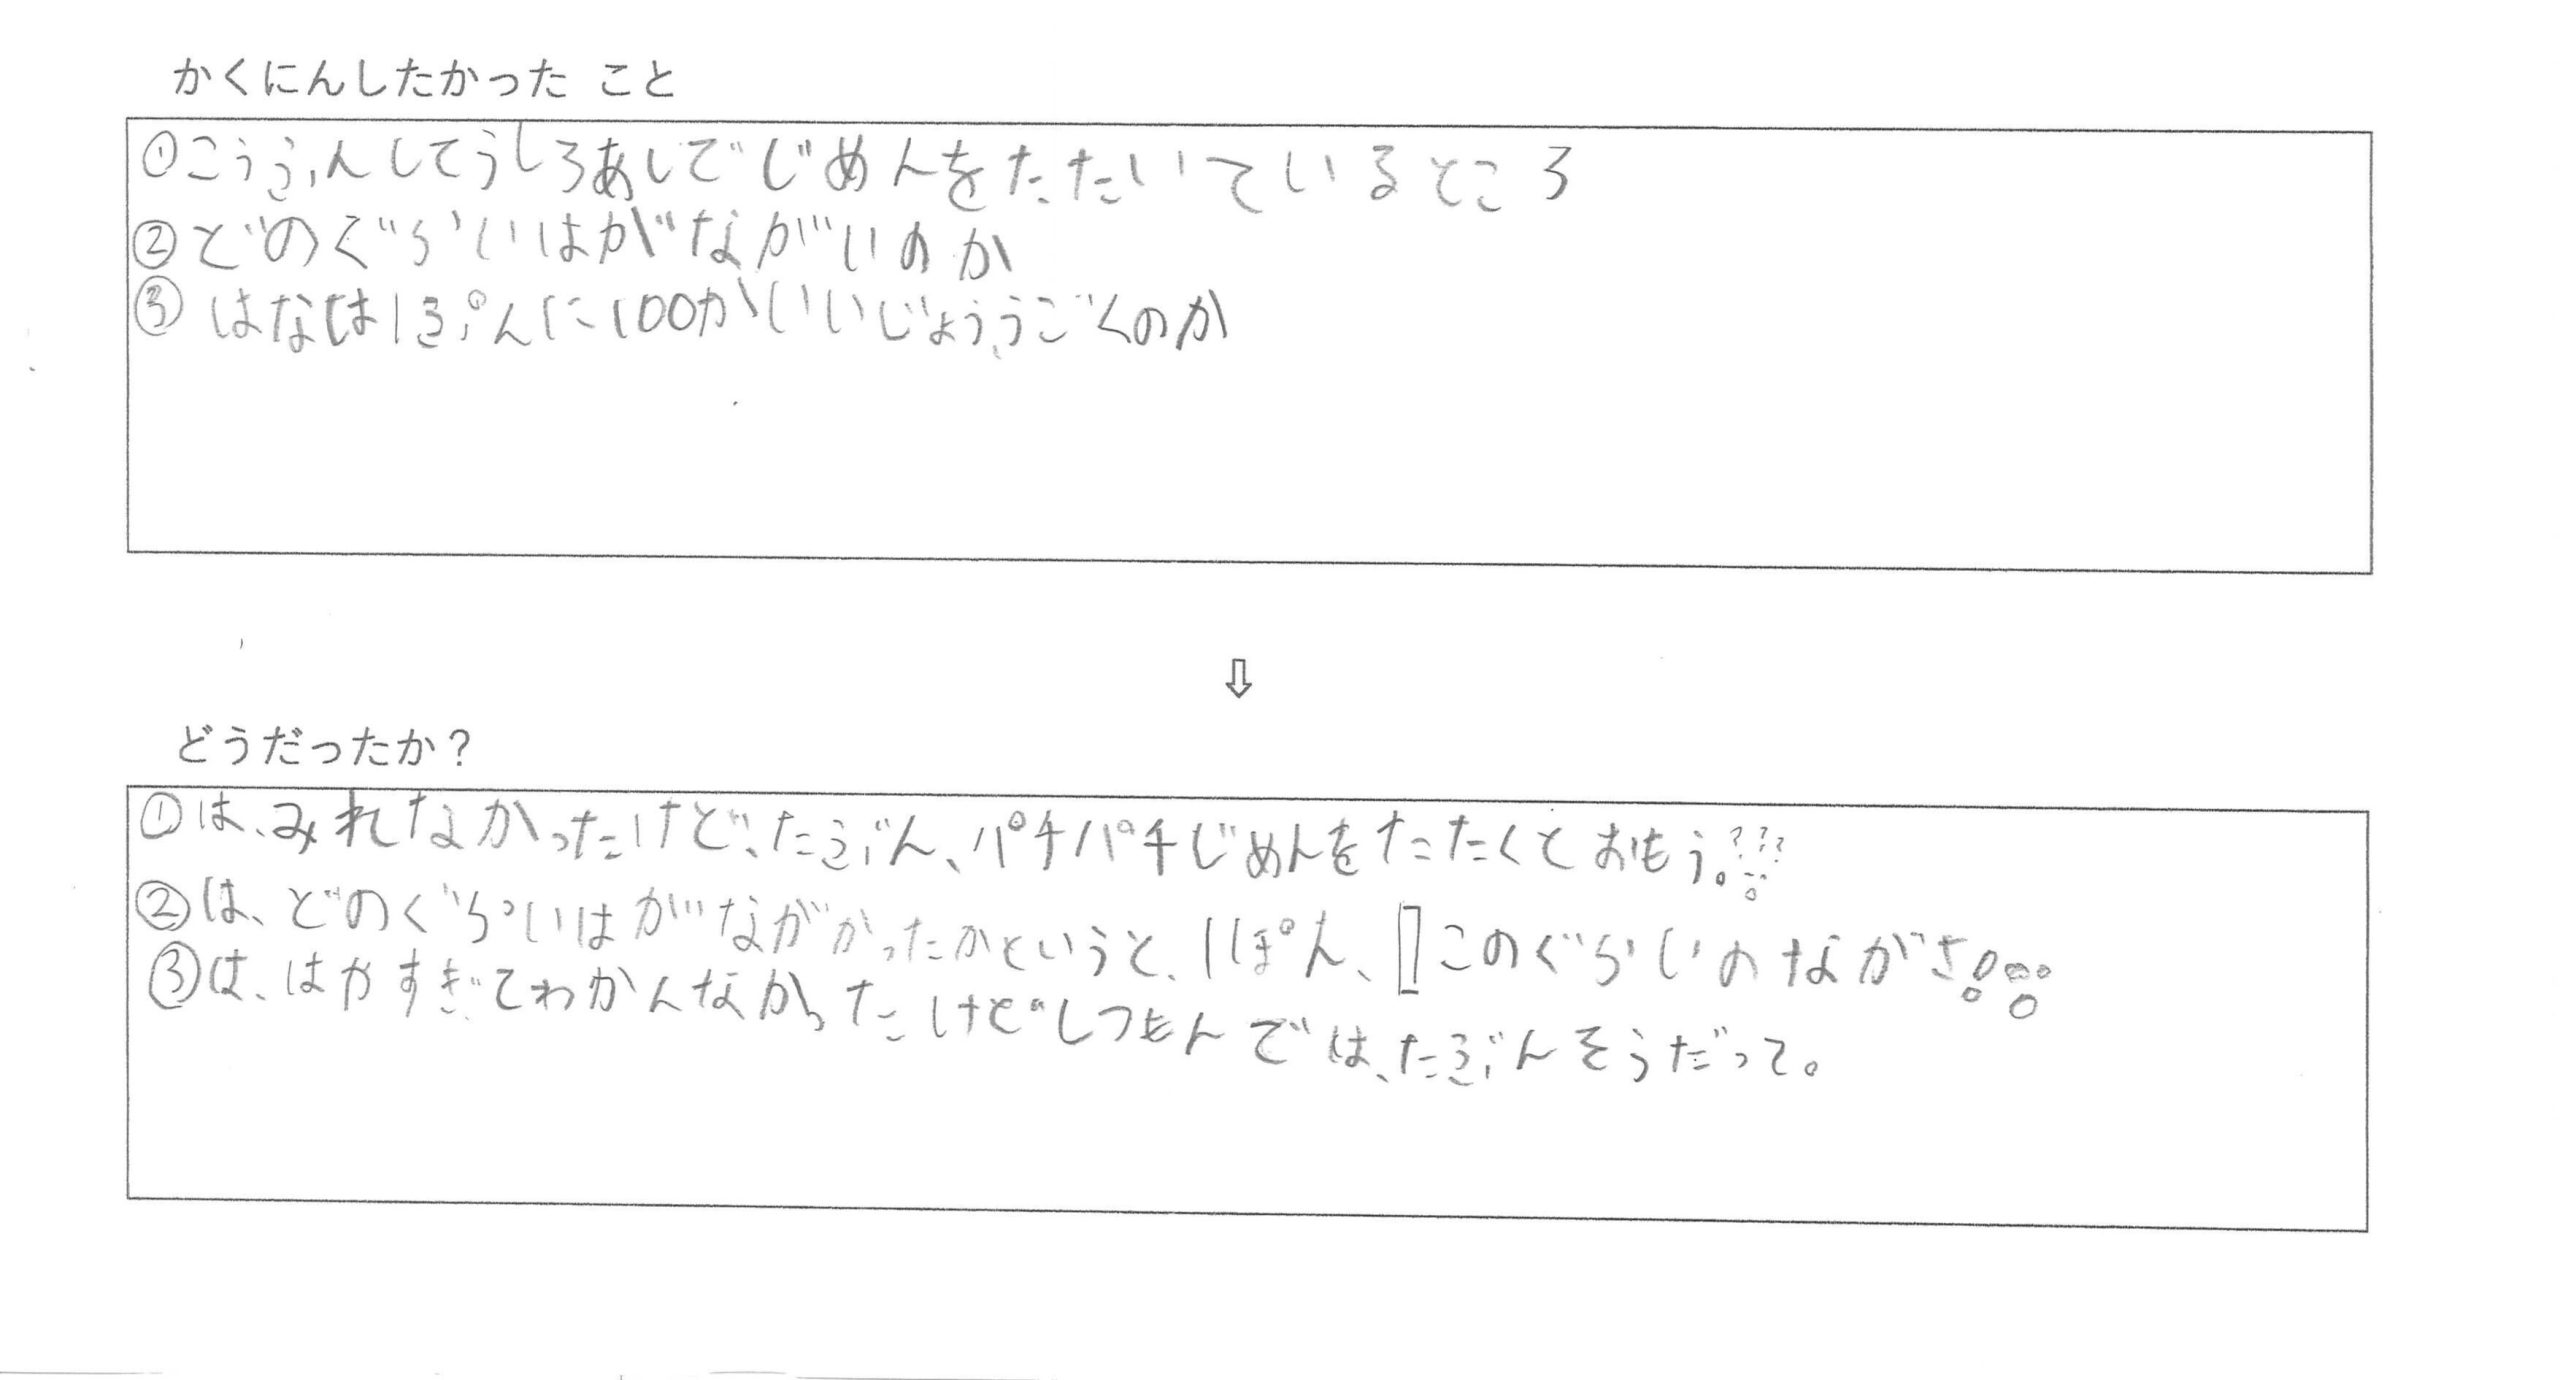 かくにんしたかった こと
①こうふんしてうしろあしでじめんをたたいているところ
②どのぐらいはがながいのか
③はなは1ぷんに100かいいじょううごくのか
⇩
どうだったか？
①は、みれなかったけど、たぶん、パチパチじめんをたたくとおもう。???
②は、どのぐらいはがながかったかというと、1ぽん、このぐらいのながさ!
③は、はやすぎてわかんなかったけどしつもんでは、たぶんそうだって。